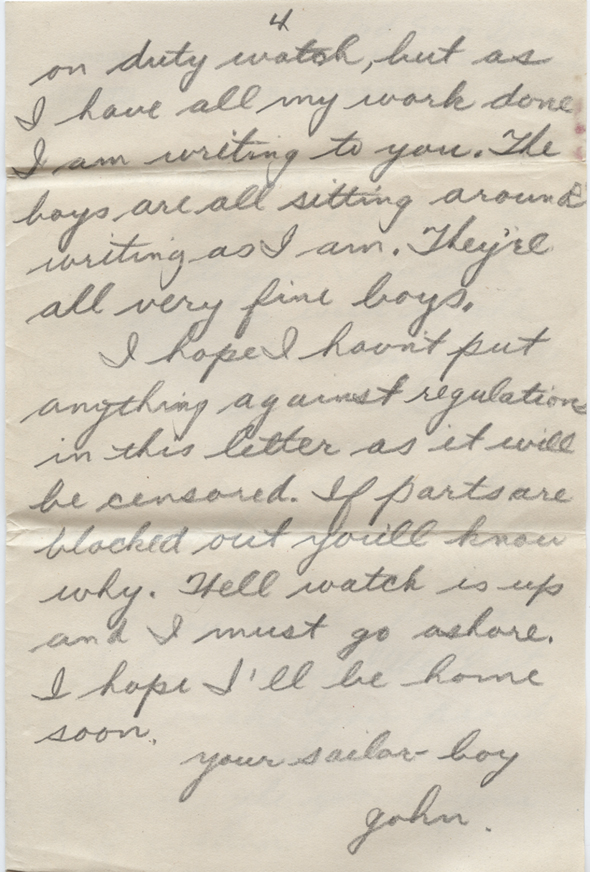 4
on duty watch, but as
I have all my work done
I am writing to you. The
boys are all sitting around
writing as I am. They're
all very fine boys.
I hope I havn't put
anything against regulations
in this letter as it will
be censored. If parts are
blocked out you'll know
why. Well watch is up
and I must go ashore.
I hope I'll be home
soon.
your sailor-boy
John.